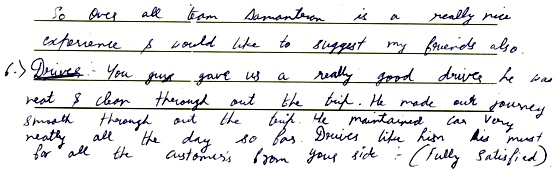 So over all team Samanteran is a really nice
experience & would like to suggest my friends also.
6.) Driver :- You guys gave us a really good driver he was
neat & clean through out the trip. He made our journey
smooth through out the trip. He maintained car very
neatly all the day so far. Driver like him is must
for all the customers from your side :- (Fully Satisfied)